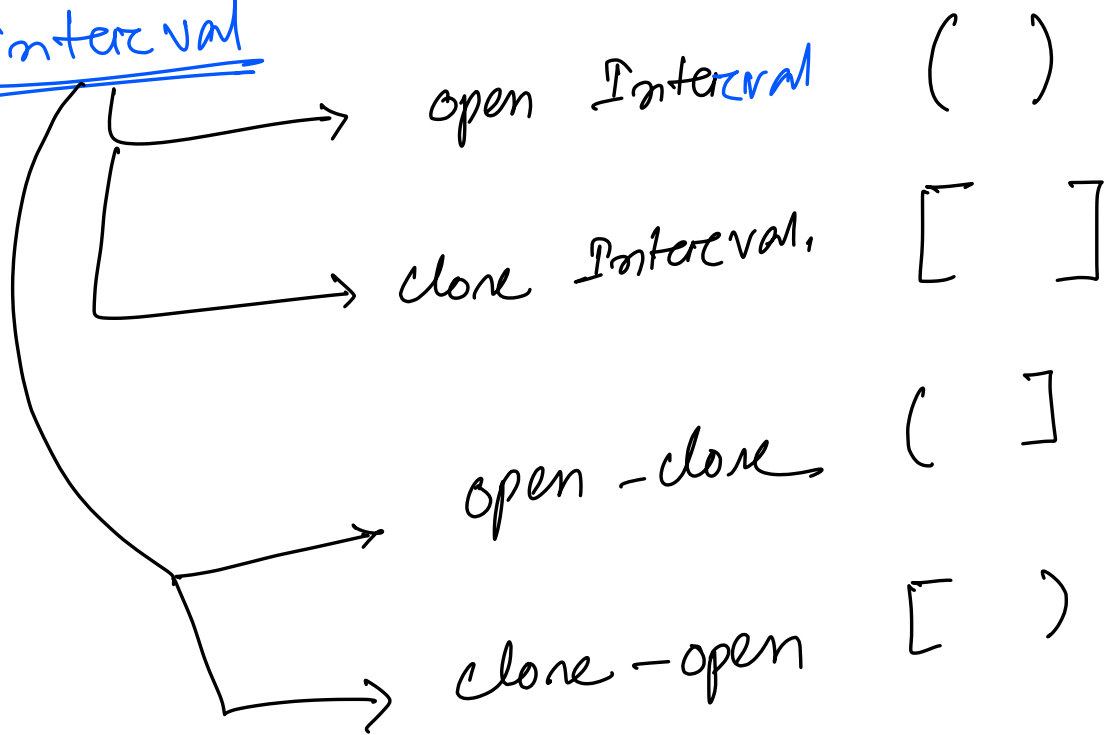 interval
open Interval ( )
close Interval. [ ]
open - close ( ]
close - open [ )